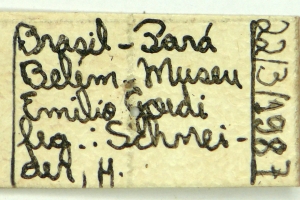 Brasil - Pará
Belém - Museu
Emilio Goeldi
leg.: Schnei-
der, H.
22/3/1987